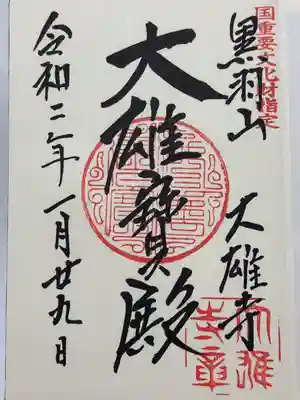 国重要文化財指定
黒羽山
大雄寺
大雄寳殿
令和二年一月廿九日